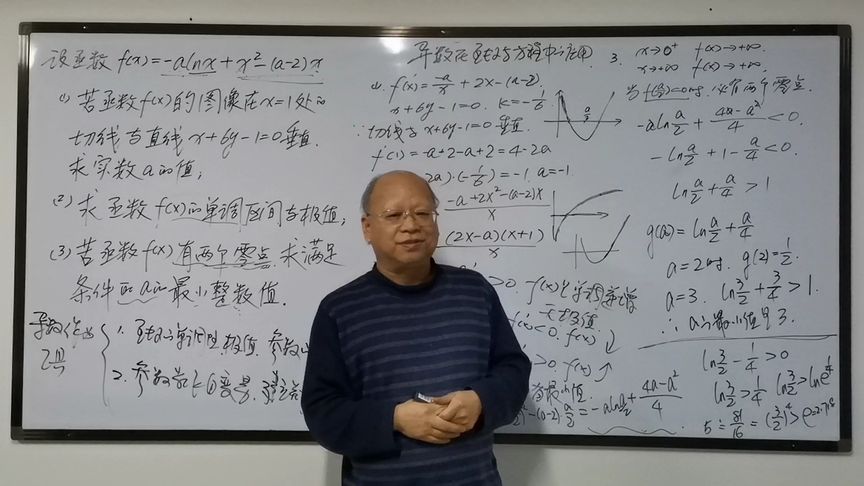 设函数 f(x)=-alnx+x²-(a-2)x
(1) 若函数f(x)的图像在x=1处的
切线与直线x+6y-1=0垂直.
求实数a的值;
(2) 求函数f(x)的单调区间与极值;
(3) 若函数f(x)有两个零点 求满足
条件的a的最小整数值.
导数作为
工具
1. 
单调性 极值. 参数
2. 参数
导数在
与方程中
(1) f'(x)=-a/x+2x-(a-2).
x+6y-1=0. k=-1/6
∵切线与x+6y-1=0垂直.
f'(1)=-a+2-a+2=4-2a
2a)·(-1/6)=-1. a=-1.
(-a+2x²-(a-2)x)/x
(2x-a)(x+1)/x
>0. f(x)
单调递增
无极值
f'(x)<0. f(x)↓
>0. f(x)↑
有最小值.
-(a-2)·a/2=-aln a/2+(4a-a²)/4
a/2
3. x→0⁺ f(x)→+∞.
x→+∞ f(x)→+∞.
当f(a/2)<0时. 必有两个零点.
-aln a/2+(4a-a²)/4<0.
-ln a/2+1-a/4<0.
ln a/2+a/4>1
g(a)=ln a/2+a/4
a=2时. g(2)=1/2.
a=3. ln 3/2+3/4>1.
∴a的最小值是3.
ln 3/2-1/4>0
ln 3/2>1/4 ln 3/2>ln e^(1/4)
5≐81/16=(3/2)⁴>e=2.718